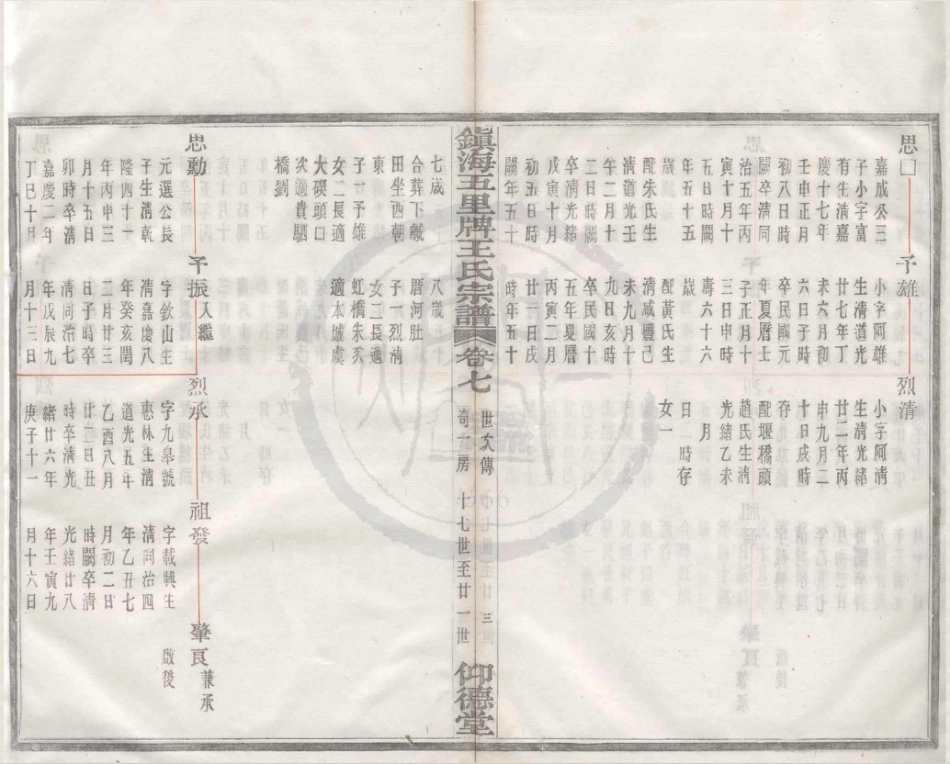 思□
嘉成公三
子小字富
有生清嘉
慶十七年
壬申正月
初八日時
闕卒清同
治五年丙
寅十月十
五日時闕
年五十五
歲
配朱氏生
清道光壬
午二月十
二日時闕
卒清光緒
戊寅十月
初五日時
闕年五十
予雄
小字阿雄
生清道光
廿七年丁
未六月初
六日子時
卒民國元
年夏曆壬
子正月十
三日申時
壽六十六
歲
配黃氏生
清咸豐己
未九月十
九日亥時
卒民國十
五年夏曆
丙寅二月
廿三日戌
時年五十
烈清
小字阿清
生清光緒
廿二年丙
申九月二
十日戌時
存
配堰橋頭
趙氏生清
光緒乙未
月
日 時存
女一
鎮海五里牌王氏宗譜
卷七
世次傳
奇一房
十七世至廿一世
三
仰德堂
七歲
合葬下戤
田坐西朝
東
子一予雄
女二長適
大碶頭口
次適貴駟
橋劉
八歲
厝河肚
子一烈清
女二長適
虹橋朱次
適本城虞
思勳
元選公長
子生清乾
隆四十一
年丙申三
月十五日
卯時卒清
嘉慶二年
丁巳十月
予振 入繼
字欽山生
清嘉慶八
年癸亥閏
二月廿三
日子時卒
清同治七
年戊辰九
月十三日
烈承
字九皋號
惠林生清
道光五年
乙酉八月
廿二日丑
時卒清光
緒廿六年
庚子十一
祖發
字載興生
清同治四
年乙丑七
月初二日
時闕卒清
光緒廿八
年壬寅九
月十六日
肇良 兼承
啟後